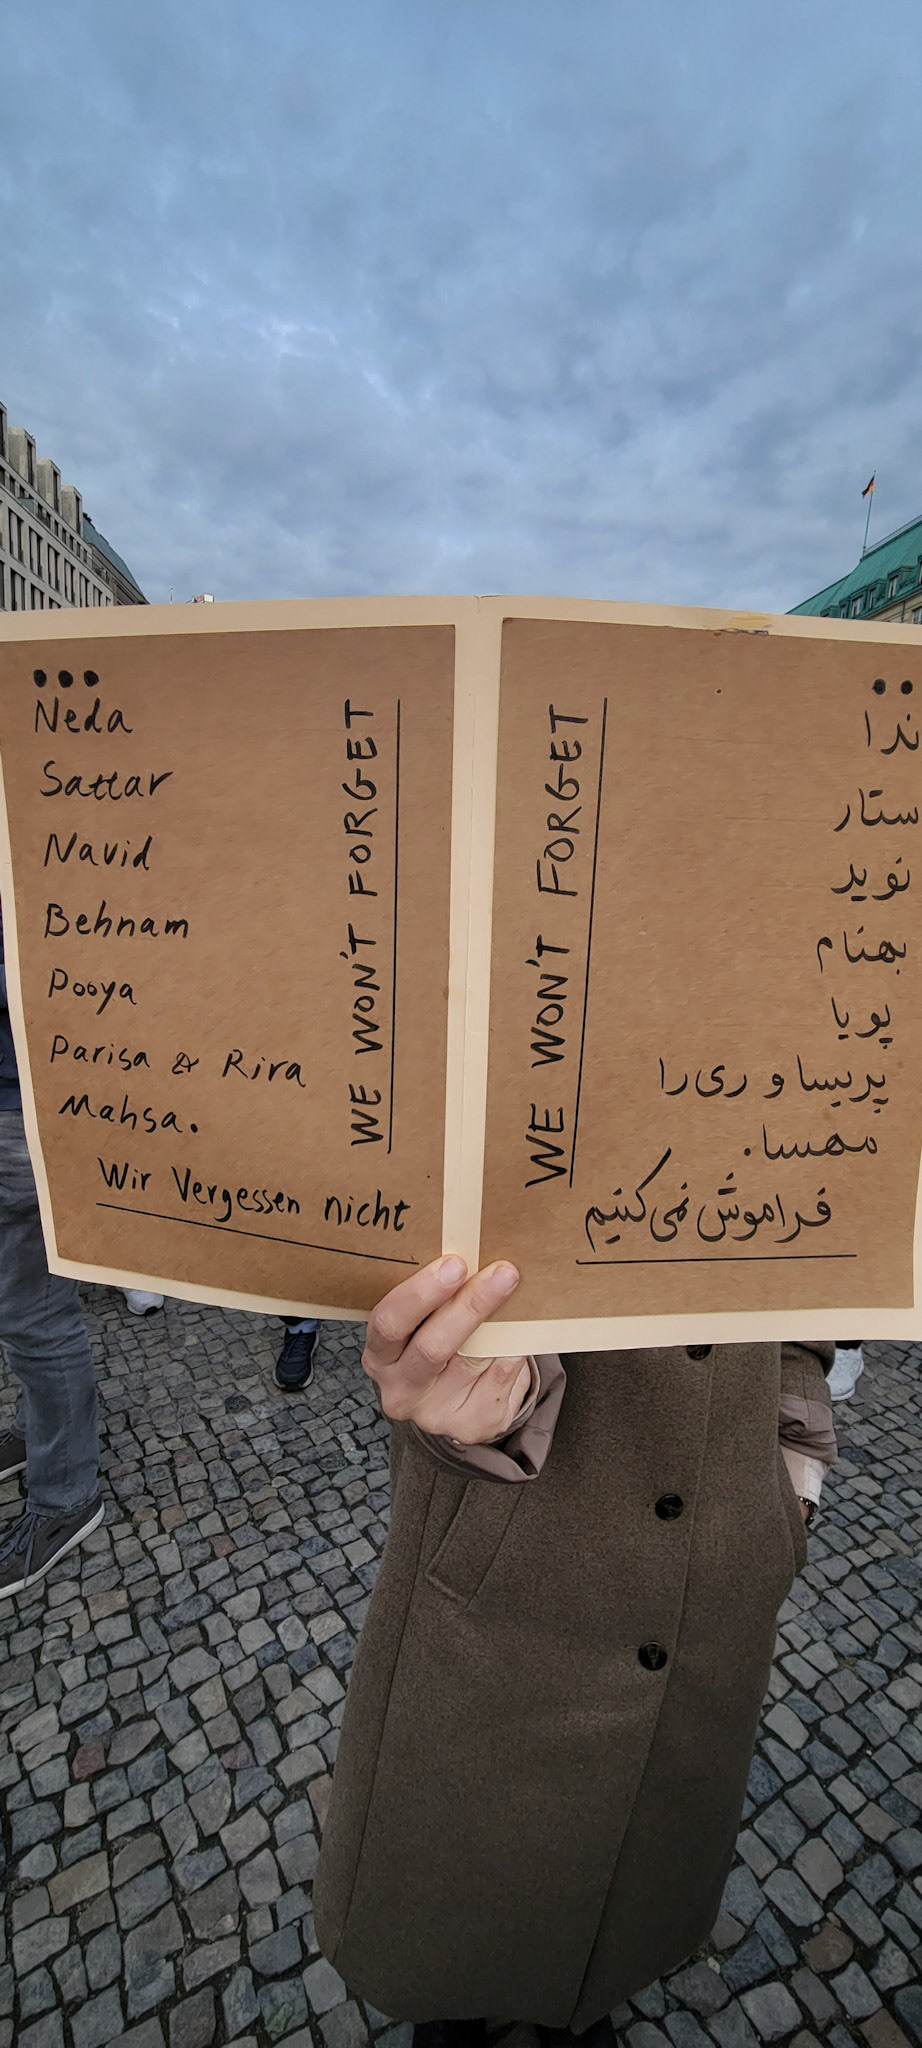 •••
Neda
Sattar
Navid
Behnam
Pooya
Parisa & Rira
Mahsa.
Wir Vergessen nicht
WE WON'T FORGET
WE WON'T FORGET
••
ندا
ستار
نوید
بهنام
پویا
پریسا و ری‌را
مهسا.
فراموش نمی‌کنیم